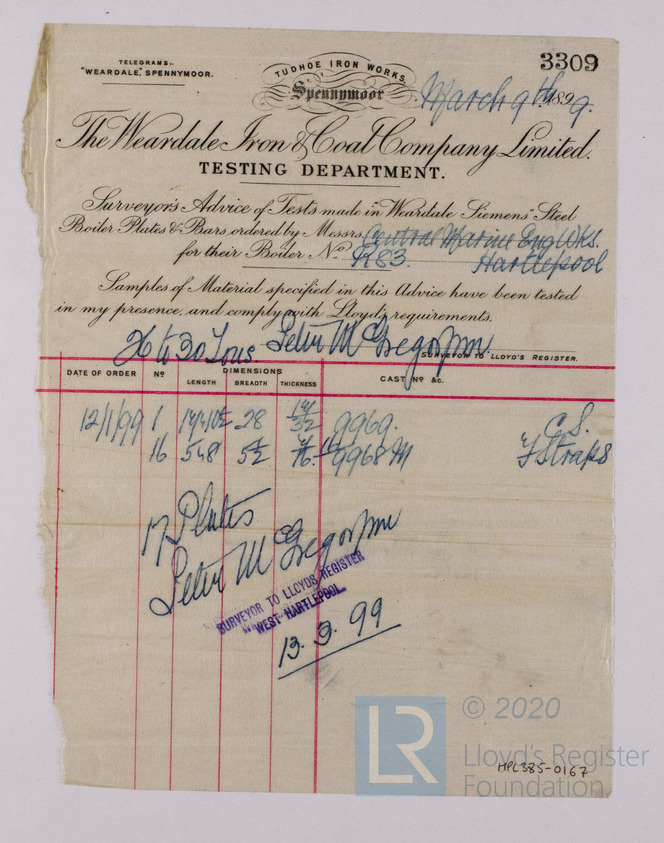 3309
TELEGRAMS:-
"WEARDALE," SPENNYMOOR.
TUDHOE IRON WORKS,
Spennymoor
March 9th 1899.
The Weardale Iron & Coal Company Limited.
TESTING DEPARTMENT.
Surveyor's Advice of Tests made in "Weardale Siemens" Steel
Boiler Plates & Bars ordered by Messrs. Central Marine Eng Wks.
for their Boiler No. R83. Hartlepool
Samples of Material specified in this Advice have been tested
in my presence, and comply with Lloyd's requirements.
26 to 30 Tons. Peter McGregor Jnr
SURVEYOR TO LLOYD'S REGISTER.
DATE OF ORDER No DIMENSIONS CAST No &c.
LENGTH BREADTH THICKNESS
12/1/99 1 28 9969. C.S.
16 548 5½ 9968 M F Straps
17 Plates
Peter McGregor Jnr
SURVEYOR TO LLOYDS REGISTER
WEST HARTLEPOOL
13.3.99
LR
© 2020
Lloyd's Register
Foundation
HPL385-0167